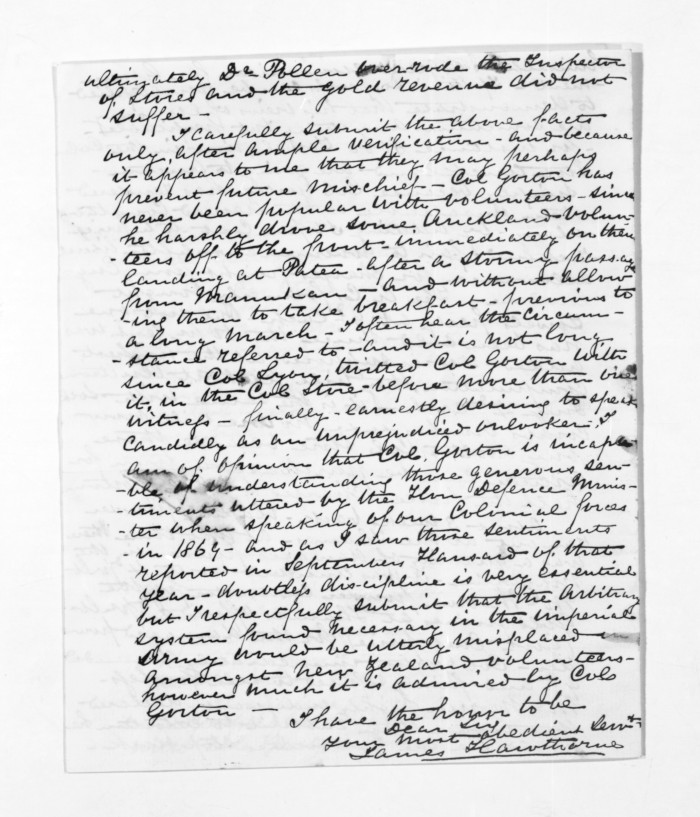 ultimately Dr Pollen over-rode the Inspector
of Stores and the gold revenue did not
suffer -
I carefully submit the above facts
only, after ample verification - and because
it appears to me that they may perhaps
prevent future mischief - Col Gorton has
never been popular with volunteers - since
he harshly drove some Auckland volun-
-teers off to the front immediately on their
landing at Patea - after a stormy passage
from Manukau - and without allow
-ing them to take breakfast - previous to
a long march - I often hear the circum-
-stance referred to - and it is not long
since Col Lyon, twitted Col Gorton with
it, in the Col Store - before more than one
witness - finally - earnestly desiring to speak
candidly as an unprejudiced onlooker. I
am of opinion that Col. Gorton is incapa
-ble of understanding those generous sen-
-timents uttered by the Hon Defence Minis-
-ter when speaking of our Colonial forces
- in 1869 - and as I saw those sentiments
reported in Septembers Hansard of that
year - doubtless dis-cipline is very essential
but I respectfully submit that the Arbitrary
system found necessary in the imperial
Army would be utterly misplaced
amongst New Zealand volunteers -
however much it is admired by Col
Gorton -
I have the honor to be
Dear Sir
Your most obedient Servt
James Hawthorne